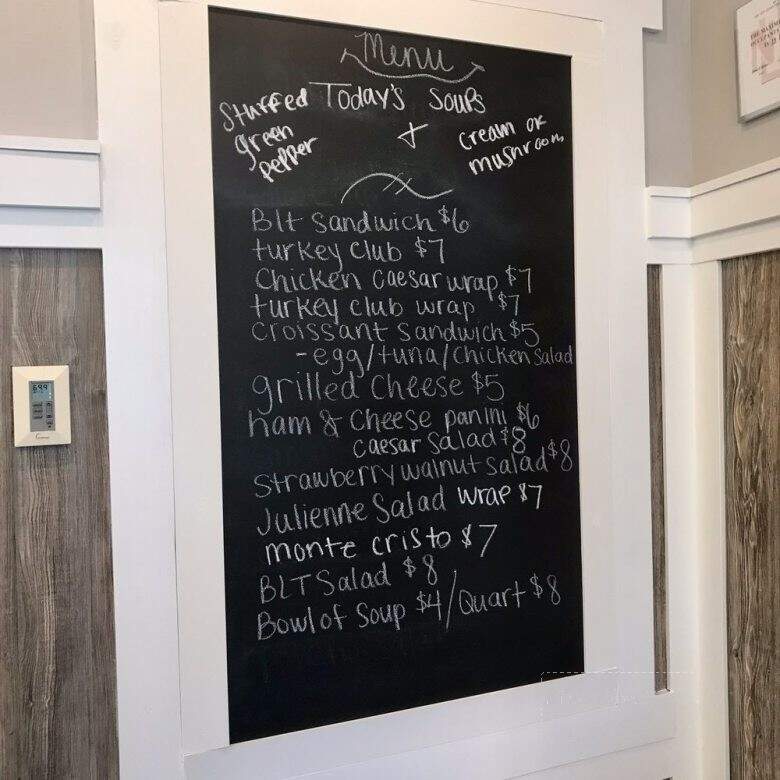 Menu
Today's Soups
Stuffed
green
pepper
+
Cream of
mushroom
Blt Sandwich $6
turkey club $7
Chicken Caesar wrap $7
turkey club wrap $7
croissant sandwich $5
-egg/tuna/chicken salad
grilled Cheese $5
ham & Cheese panini $6
caesar salad $8
Strawberry walnut Salad $8
Julienne Salad wrap $7
monte cristo $7
BLT Salad $8
Bowl of Soup $4/Quart $8